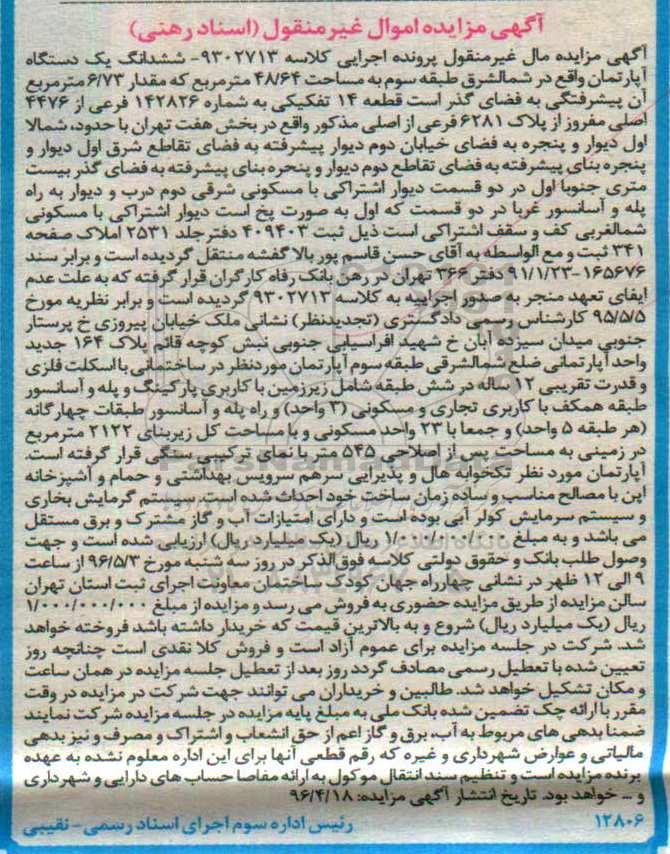 آگهی مزایده اموال غیرمنقول (اسناد رهنی)
آگهی مزایده مال غیرمنقول پرونده اجرایی کلاسه ۹۳۰۲۷۱۳- ششدانگ یک دستگاه
آپارتمان واقع در شمالشرق طبقه سوم به مساحت ۴۸/۶۴ مترمربع که مقدار ۶/۷۳ مترمربع
آن پیشرفتگی به فضای گذر است قطعه ۱۴ تفکیکی به شماره ۱۴۲۸۲۶ فرعی از ۴۴۷۶
اصلی مفروز از پلاک ۶۲۸۱ فرعی از اصلی مذکور واقع در بخش هفت تهران با حدود، شمالا
اول دیوار و پنجره به فضای خیابان دوم دیوار پیشرفته به فضای تقاطع شرق اول دیوار و
پنجره بنای پیشرفته به فضای تقاطع دوم دیوار و پنجره بنای پیشرفته به فضای گذر بیست
متری جنوبا اول در دو قسمت دیوار اشتراکی با مسکونی شرقی دوم درب و دیوار به راه
پله و آسانسور غربا در دو قسمت که اول به صورت پخ است دیوار اشتراکی با مسکونی
شمالغربی کف و سقف اشتراکی است ذیل ثبت ۴۰۹۴۰۳ دفتر جلد ۲۵۳۱ املاک صفحه
۳۴۱ ثبت و مع الواسطه به آقای حسن قاسم پور بالا گفشه منتقل گردیده است و برابر سند
۱۶۵۶۷۶-۹۱/۱/۲۳ دفتر ۳۶۶ تهران در رهن بانک رفاه کارگران قرار گرفته که به علت عدم
ایفای تعهد منجر به صدور اجراییه به کلاسه ۹۳۰۲۷۱۳ گردیده است و برابر نظریه مورخ
۹۵/۵/۵ کارشناس رسمی دادگستری (تجدیدنظر) نشانی ملک خیابان پیروزی خ پرستار
جنوبی میدان سیزده آبان خ شهید افراسیابی جنوبی نبش کوچه قائم پلاک ۱۶۴ جدید
واحد آپارتمانی ضلع شمالشرقی طبقه سوم آپارتمان موردنظر در ساختمانی با اسکلت فلزی
و قدرت تقریبی ۱۲ ساله در شش طبقه شامل زیرزمین با کاربری پارکینگ و پله و آسانسور
طبقه همکف با کاربری تجاری و مسکونی (۳ واحد) و راه پله و آسانسور طبقات چهارگانه
(هر طبقه ۵ واحد) و جمعا با ۲۳ واحد مسکونی و با مساحت کل زیربنای ۲۱۲۲ مترمربع
در زمینی به مساحت پس از اصلاحی ۵۴۵ متر با نمای ترکیبی سنگی قرار گرفته است.
آپارتمان مورد نظر تکخوابه هال و پذیرایی سرهم سرویس بهداشتی و حمام و آشپزخانه
اپن با مصالح مناسب و ساده زمان ساخت خود احداث شده است. سیستم گرمایش بخاری
و سیستم سرمایش کولر آبی بوده است و دارای امتیازات آب و گاز مشترک و برق مستقل
می باشد و به مبلغ ۱/۰۰۰/۰۰۰/۰۰۰ ریال (یک میلیارد ریال) ارزیابی شده است و جهت
وصول طلب بانک و حقوق دولتی کلاسه فوق‌الذکر در روز سه شنبه مورخ ۹۶/۵/۳ از ساعت
۹ الی ۱۲ ظهر در نشانی چهارراه جهان کودک ساختمان معاونت اجرای ثبت استان تهران
سالن مزایده از طریق مزایده حضوری به فروش می رسد و مزایده از مبلغ ۱/۰۰۰/۰۰۰/۰۰۰
ریال (یک میلیارد ریال) شروع و به بالاترین قیمت که خریدار داشته باشد فروخته خواهد
شد. شرکت در جلسه مزایده برای عموم آزاد است و فروش کلا نقدی است چنانچه روز
تعیین شده با تعطیل رسمی مصادف گردد روز بعد از تعطیل جلسه مزایده در همان ساعت
و مکان تشکیل خواهد شد. طالبین و خریداران می توانند جهت شرکت در مزایده در وقت
مقرر با ارائه چک تضمین شده بانک ملی به مبلغ پایه مزایده در جلسه مزایده شرکت نمایند
ضمنا بدهی های مربوط به آب، برق و گاز اعم از حق انشعاب و اشتراک و مصرف و نیز بدهی
مالیاتی و عوارض شهرداری و غیره که رقم قطعی آنها برای این اداره معلوم نشده به عهده
برنده مزایده است و تنظیم سند انتقال موکول به ارائه مفاصا حساب های دارایی و شهرداری
و ... خواهد بود. تاریخ انتشار آگهی مزایده: ۹۶/۴/۱۸
۱۲۸۰۶ رئیس اداره سوم اجرای اسناد رسمی - نقیبی
ParsNamadData